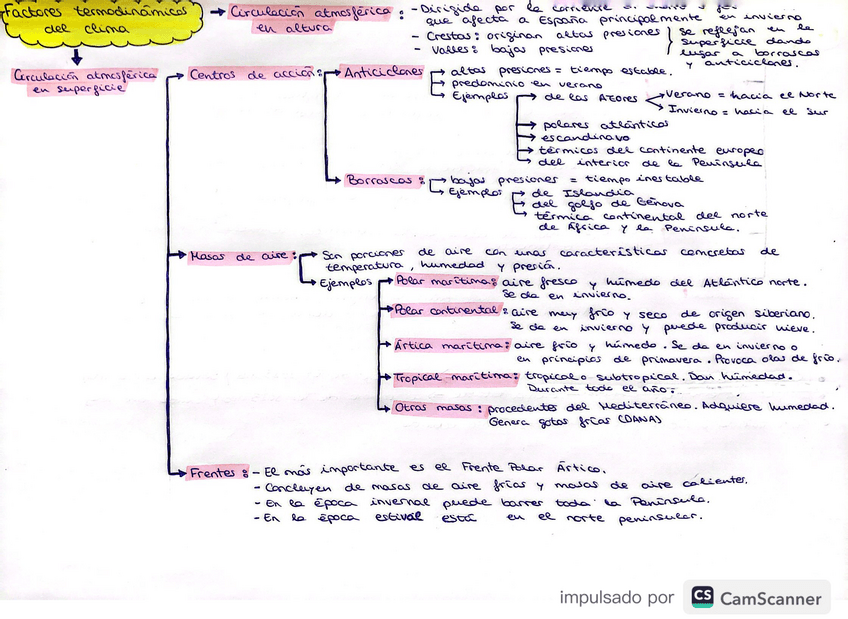 Factores termodinámicos del clima
→ Circulación atmosférica en altura :
- Dirigida por la corriente
que afecta a España principalmente en invierno
- Crestas : originan altas presiones
- Valles : bajas presiones
se reflejan en la
superficie dando
lugar a borrascas
y anticiclones.
Circulación atmosférica
en superficie
Centros de acción :
Anticiclones
altas presiones = tiempo estable.
predominio en verano
Ejemplos
de las Azores
Verano = hacia el Norte
Invierno = hacia el sur
polares atlánticos
escandinavo
térmicos del continente europeo
del interior de la Península
Borrascas :
bajas presiones = tiempo inestable
Ejemplos
de Islandia
del golfo de Génova
térmica continental del norte
de África y la Península.
Masas de aire :
Son porciones de aire con unas características concretas de
temperatura, humedad y presión.
Ejemplos
Polar marítima : aire fresco y húmedo del Atlántico norte.
Se da en invierno.
Polar continental : aire muy frío y seco de origen siberiano.
Se da en invierno y puede producir nieve.
Ártica marítima : aire frío y húmedo. Se da en invierno o
en principios de primavera. Provoca olas de frío.
Tropical marítima : tropical o subtropical. Dan húmedad.
Durante todo el año.
Otras masas : procedentes del Mediterráneo. Adquiere humedad.
Genera gotas frías (DANAS)
Frentes :
- El más importante es el Frente Polar Ártico.
- Concluyen de masas de aire frías y masas de aire calientes.
- En la época invernal puede barrer toda la Península.
- En la época estival está en el norte peninsular.
impulsado por CS CamScanner